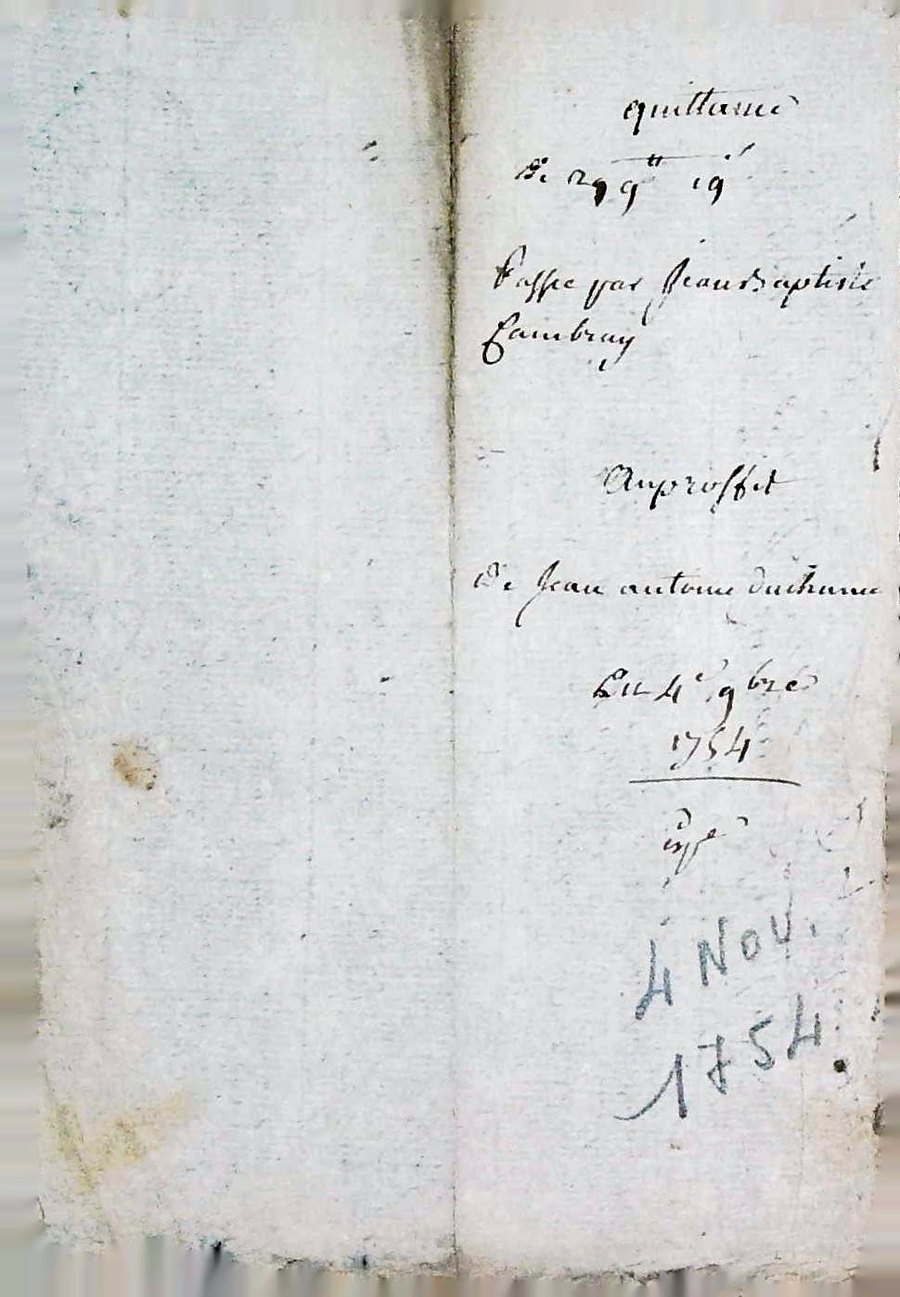 quittance
De 299ᵗᵗ 19ˢ
Passée par Jean Baptiste
Cambray
Au proffit
De Jean antoine
Du 4ᵉ 9bre
1754
4 NOV.
1754